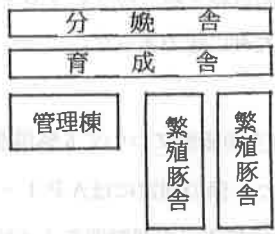 分娩舎
育成舎
管理棟
繁殖豚舎
繁殖豚舎